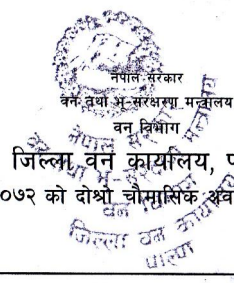 नेपाल सरकार
वन तथा भू-संरक्षण मन्त्रालय
वन विभाग
जिल्ला वन कार्यालय, प
०७२ को दोश्रो चौमासिक अव
नेपाल सरकार
वन विभाग
जिल्ला वन कार्यालय
पाल्पा